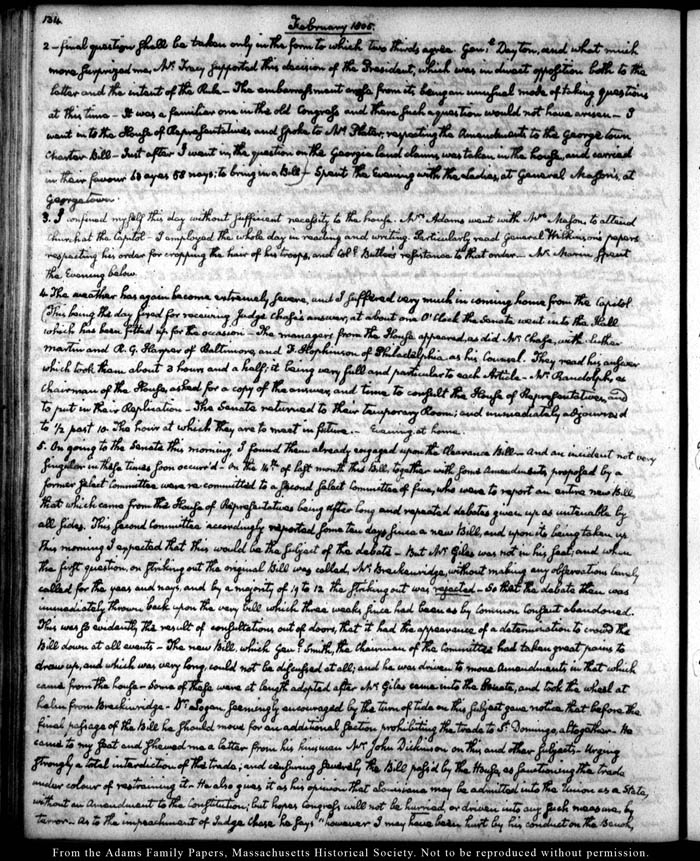 134.
February 1805.
2 - final question shall be taken only in the form to which two thirds agree. Genl. Dayton, and what much
more surprized me, Mr. Tracy supported this decision of the President, which was in direct opposition both to the
letter and the intent of the Rule - The embarrassment arose from its being an unusual mode of taking questions
at this time - It was a familiar one in the old Congress and there such a question would not have arisen - I
went in to the House of Representatives and spoke to Mr. respecting the Amendments to the George town
Charter Bill - Just after I went in, the question on the Georgia land claims was taken in the house, and carried
in their favour 63 ayes 58 nays; to bring in a Bill - Spent the Evening with the Ladies, at General Mason's, at
Georgetown.
3. I confined myself this day without sufficient necessity to the house. Mrs. Adams went with Mrs. Mason to attend
church at the Capitol - I employed the whole day in reading and writing. Particularly read General Wilkinson's papers
respecting his order for cropping the hair of his troops, and Coll. Butler's resistance to that order - Mr. spent
the Evening below.
4. The weather has again become extremely severe, and I suffered very much in coming home from the Capitol
(This being the day fixed for receiving Judge Chase's answer, at about one O'Clock the Senate went into the Hall
which has been fitted up for the occasion - The managers from the House appeared, as did Mr. Chase, with Luther
Martin and R. G. Harper of Baltimore, and J. Hopkinson of Philadelphia as his Counsel. They read his answer
which took them about 3 hours and a half; it being very full and particular to each Article - Mr. Randolph, as
chairman of the House, asked for a copy of the answer, and time to consult the House of Representatives, and
to put in their Replication - The Senate returned to their temporary Room; and immediately adjourned
to 1/2 past 10. The hour at which they are to meet in future. - Evening at home.
5. On going to the Senate this morning, I found them already engaged upon the Clearance Bill - And an incident not very
singular in these times soon occur'd - On the 14th of last month this Bill, together with some Amendments, proposed by a
former select Committee were re-committed to a second select Committee of five, who were to report an entire new Bill
that which came from the House of Representatives being after long and repeated debates given up as untenable by
all sides. This second Committee accordingly reported some ten days since a new Bill, and upon its being taken up
this morning I expected that this would be the subject of the debate - But Mr. Giles was not in his seat; and when
the first question, on striking out the original Bill was called, Mr. Breckenridge, without making any observations barely
called for the yeas and nays, and by a majority of 19 to 12 the striking out was rejected - So that the debate then was
immediately thrown back upon the very bill which three weeks since had been as by Common Consent abandoned.
This was so evidently the result of consultations out of doors, that it had the appearance of a determination to crowd the
Bill down at all events - The new Bill, which Genl. Smith, the Chairman of the Committee had taken great pains to
draw up, and which was very long, could not be discussed at all; and he was driven to move Amendments in that which
came from the house - Some of these were at length adopted after Mr. Giles came into the Senate, and took the wheel at
helm from Breckenridge - Dr. Logan seemingly encouraged by the turn of tide on this subject gave notice that before the
final passage of the Bill he should move for an additional section prohibiting the trade to St. Domingo, altogether - He
came to my seat and shewed me a letter from his kinsman Mr. John Dickinson on this and other subjects - Urging
strongly a total interdiction of the trade; and censuring severely the Bill pass'd by the House, as sanctioning the trade
under colour of restraining it - He also gives it as his opinion that Louisiana may be admitted into the Union as a State,
without an Amendment to the Constitution; but hopes Congress will not be hurried or driven into any such measure, by
terror - As to the impeachment of Judge Chase he says "however I may have been hurt by his conduct on the Bench,
From the Adams Family Papers, Massachusetts Historical Society. Not to be reproduced without permission.